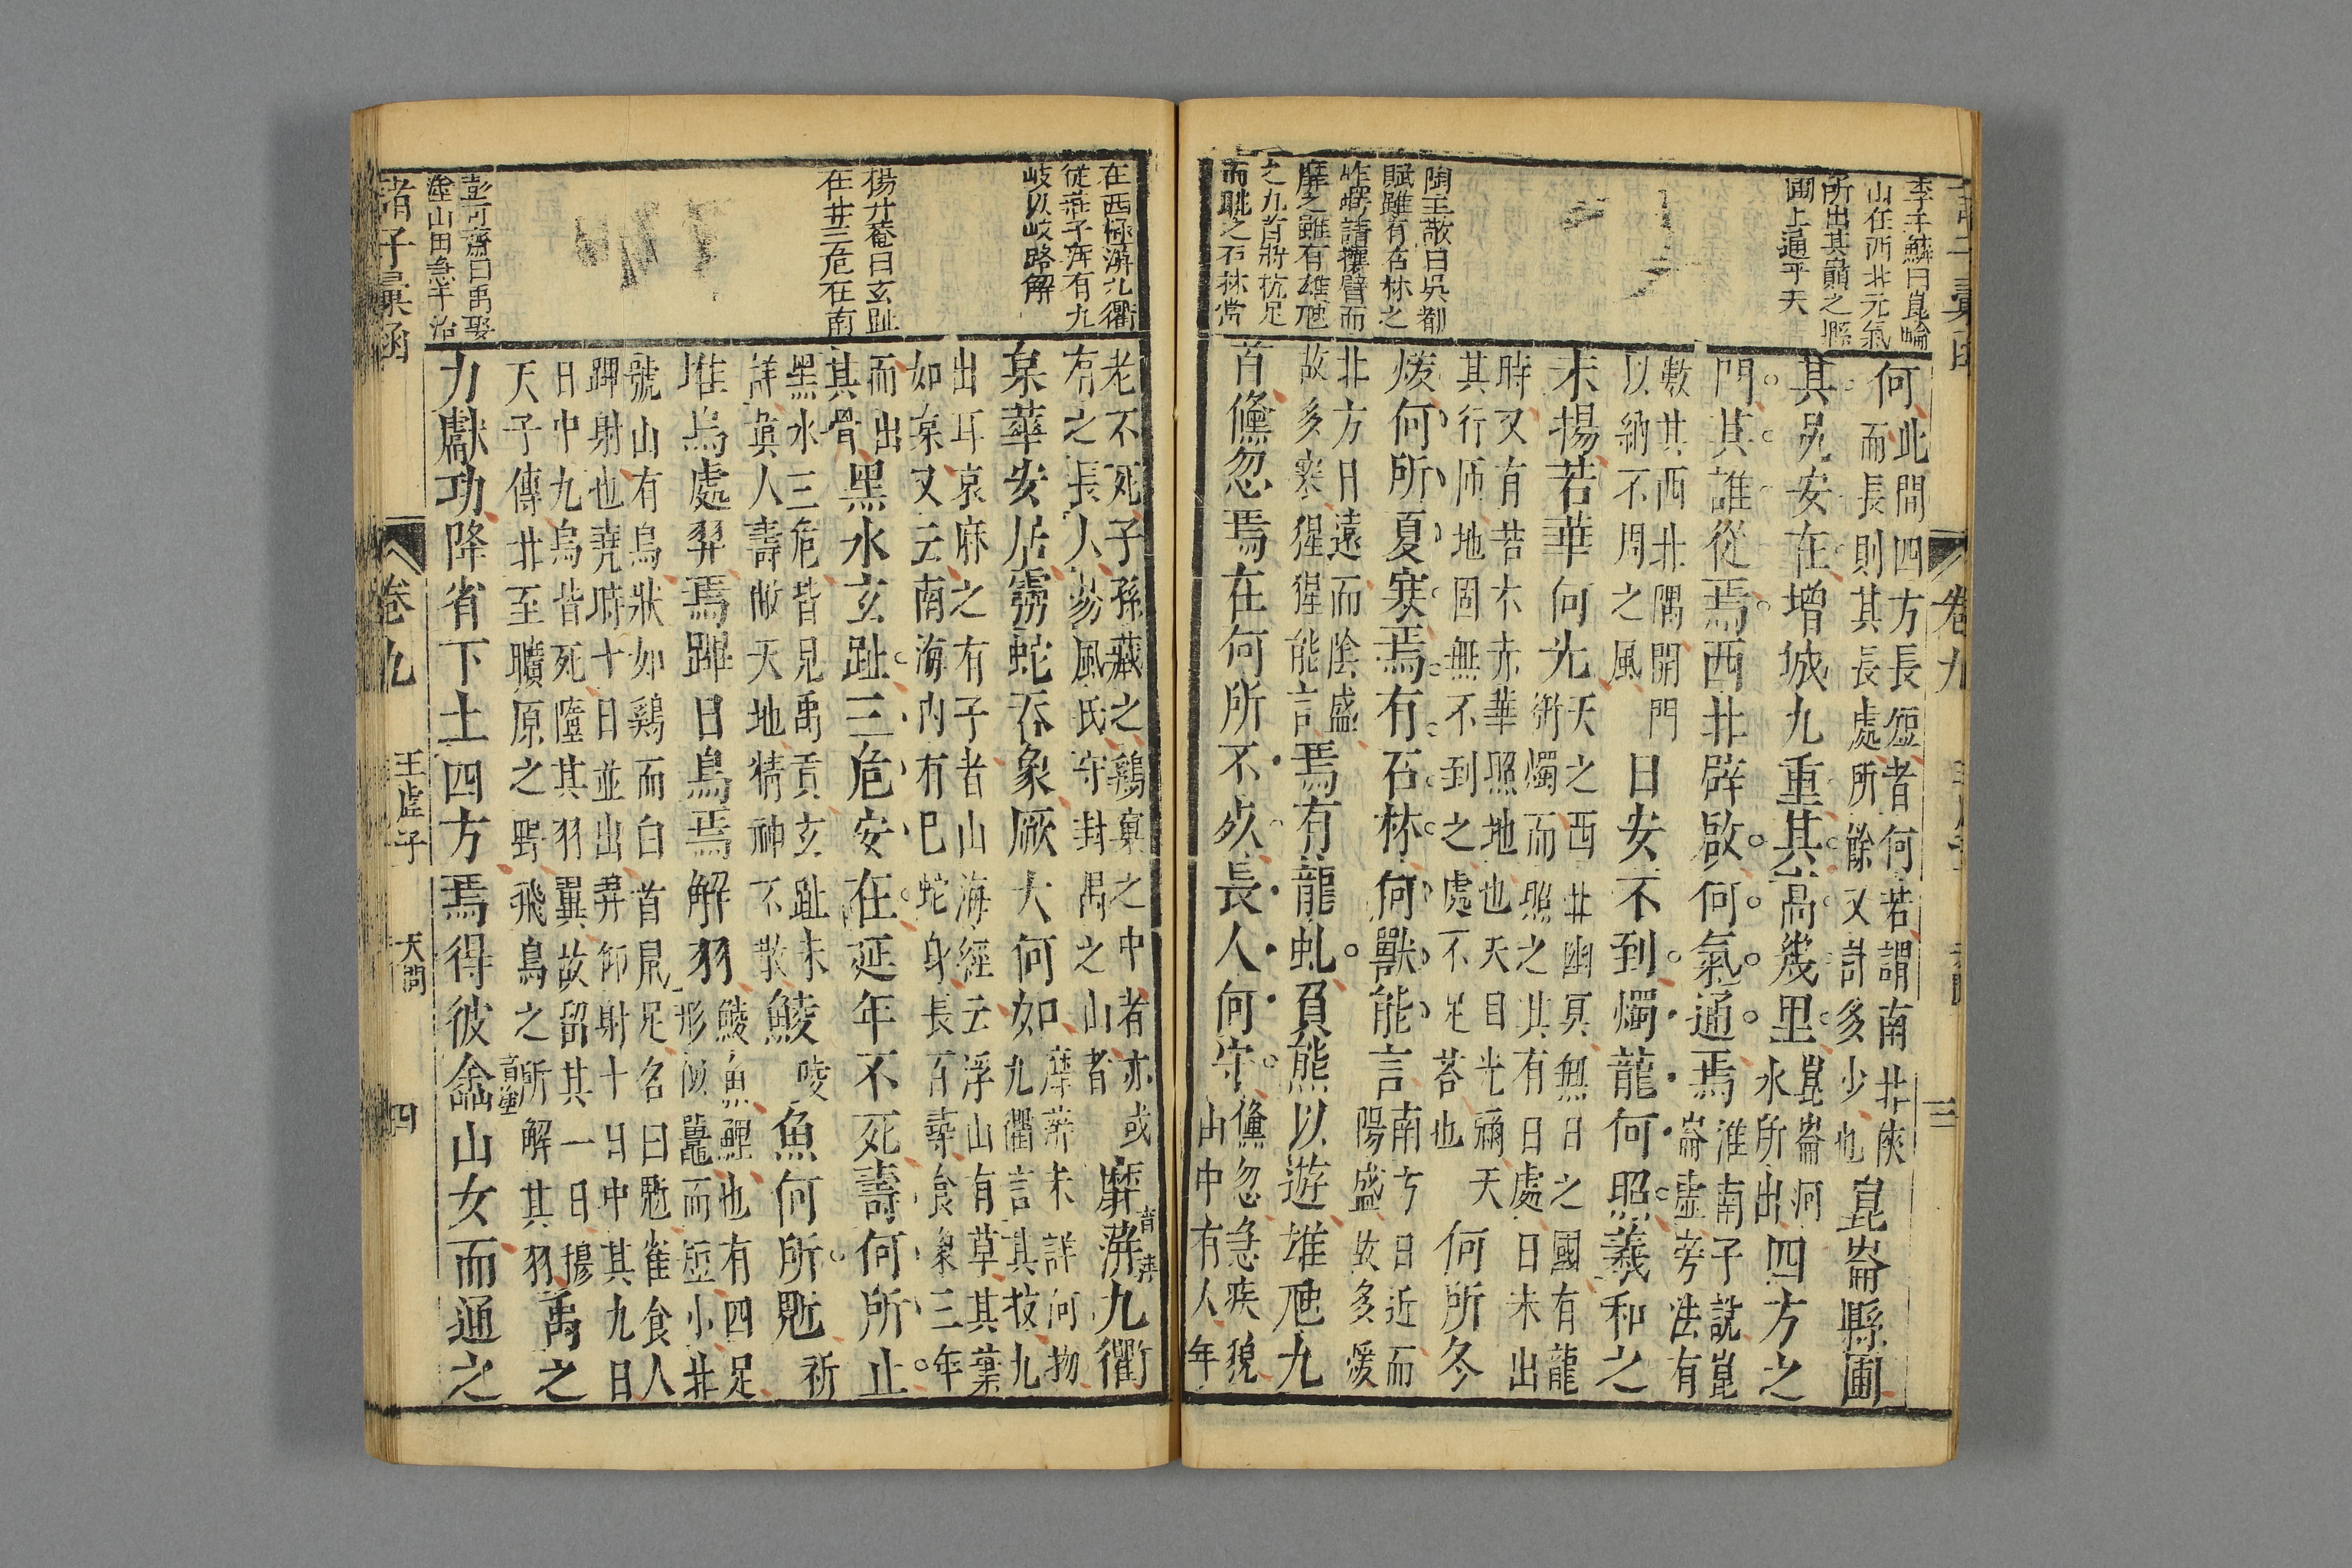 李于鱗曰崑崙
山在西北元氣
所出其巔之縣
圃上通乎天
陶主敬曰吳都
賦雖有石林之
岞崿請攘臂而
靡之雖有雄虺
之九首將抗足
而跐之石林當
何此間四方長短者何若謂南北陜
而長則其長處所餘又計多少也崑崙縣圃
其凥安在增城九重其高幾里崑崙河
水所出四方之
門其誰從焉西北辟啟何氣通焉淮南子說崑
崙虛旁㳒有
數其西北隅開門
以納不周之風日安不到燭龍何照羲和之
未揚若華何光天之西北幽冥無日之國有龍
銜燭而照之其有日處日未出
時又有若木赤華照地也天目光彌天
其行帀地固無不到之處不足荅也何所冬
煖何所夏寒焉有石林何獸能言南方日近而
陽盛故多煖
北方日遠而陰盛
故多寒猩猩能言焉有龍虬負熊以遊雄虺九
首儵忽焉在何所不死長人何守儵忽急疾貌
山中有人年
卷九
三
在西極蓱九衢
從莊子奔有九
岐以岐路解
楊升菴曰玄趾
在北三危在南
彭可齋曰禹娶
塗山田急于治
老不死子孫藏之鷄窠之中者亦或
有之長人防風氏守封禺之山者靡蓱音萍九衢
枲華安居靈蛇吞象厥大何如靡蓱未詳何物
九衢言其枝九
出耳京麻之有子者山海經云浮山有草其葉
如枲又云南海內有巴蛇身長百尋食象三年
而出
其骨黑水玄趾三危安在延年不死壽何所止
黑水三危皆見禹貢玄趾未
詳眞人壽敝天地精神不散鯪陵魚何所鬿祈
堆焉處羿焉彃日烏焉解羽鯪魚鯉也有四足
形似鼉而短小北
號山有鳥狀如鷄而白首鼠足名曰鬿雀食人
彃射也堯時十日並出羿仰射十日中其九日
日中九烏皆死墮其羽翼故留其一日揚
天子傳北至曠原之野飛鳥之所解其羽禹之
力獻功降省下土四方焉得彼嵞音塗山女而通之
諸子彙函
卷九
王虛子
天問
四